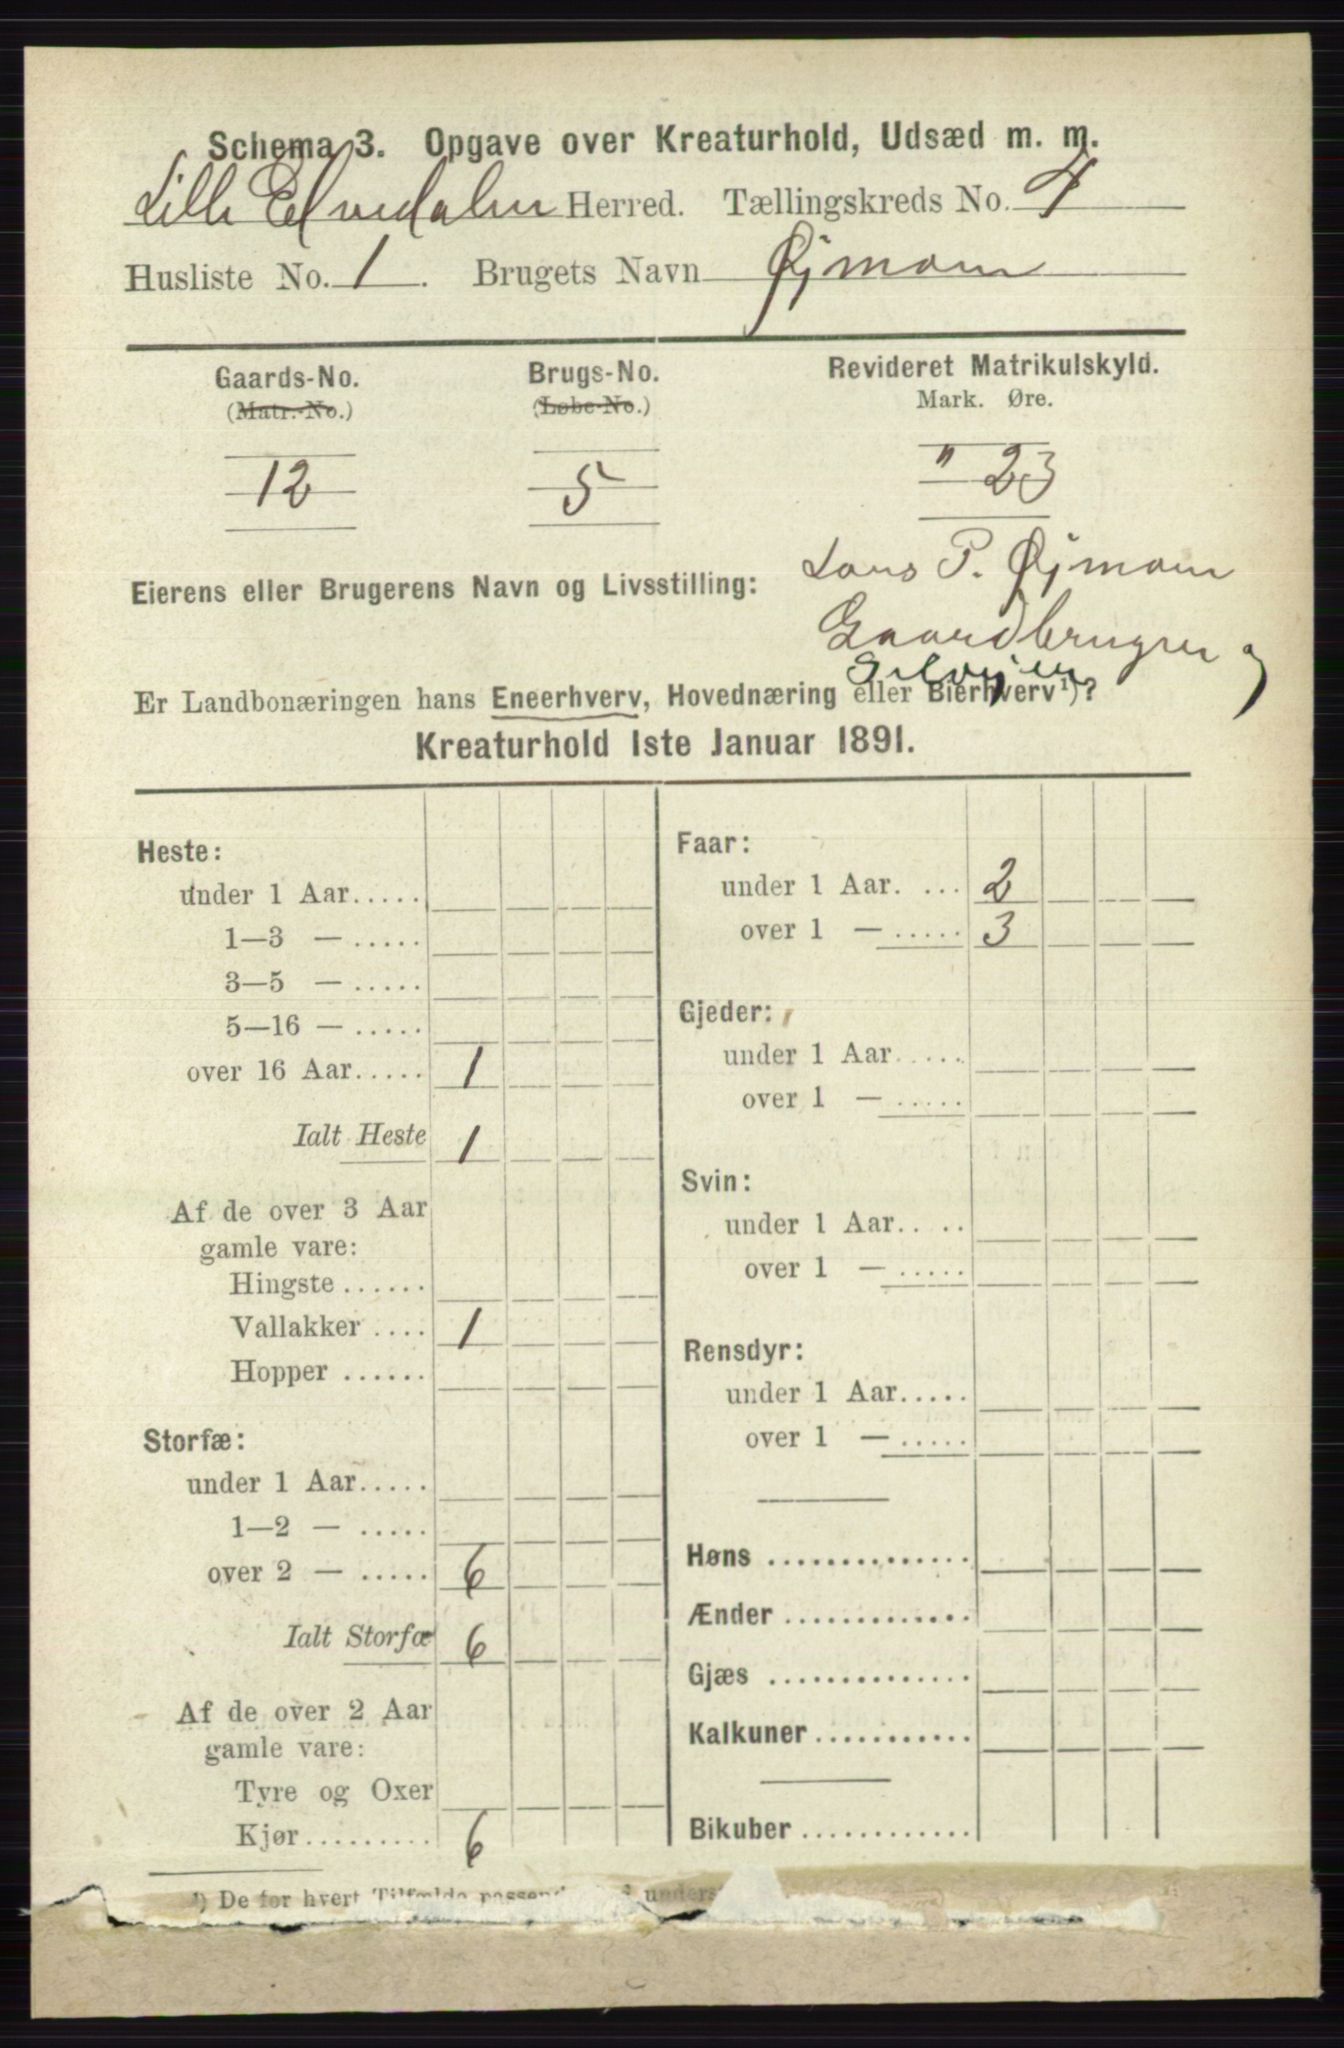 Schema 3. Opgave over Kreaturhold, Udsæd m. m.
Lille Elvedalen Herred. Tællingskreds No. 4
Husliste No. 1. Brugets Navn Øjmoen
Gaards-No. Brugs-No. Revideret Matrikulskyld.
(Matr.-No.) (Løbe-No.) Mark. Øre.
12 5 " 23
Lars P. Øjmoen
Eierens eller Brugerens Navn og Livsstilling:
Gaardbruger og
Selvejer
Er Landbonæringen hans Eneerhverv, Hovednæring eller Bierhverv¹)?
Kreaturhold 1ste Januar 1891.
Heste:
under 1 Aar.....
1—3 — .....
3—5 — .....
5—16 — .....
over 16 Aar..... 1
Ialt Heste 1
Af de over 3 Aar
gamle vare:
Hingste ......
Vallakker .... 1
Hopper ......
Storfæ:
under 1 Aar.....
1—2 — .....
over 2 — ..... 6
Ialt Storfæ 6
Af de over 2 Aar
gamle vare:
Tyre og Oxer
Kjør......... 6
Faar:
under 1 Aar. ... 2
over 1 — ..... 3
Gjeder:
under 1 Aar.....
over 1 — .....
Svin:
under 1 Aar.. ..
over 1 — .....
Rensdyr:
under 1 Aar.....
over 1 — .....
Høns ..............
Ænder .............
Gjæs ..............
Kalkuner...........
Bikuber ............
¹) De for hvert Tilfælde